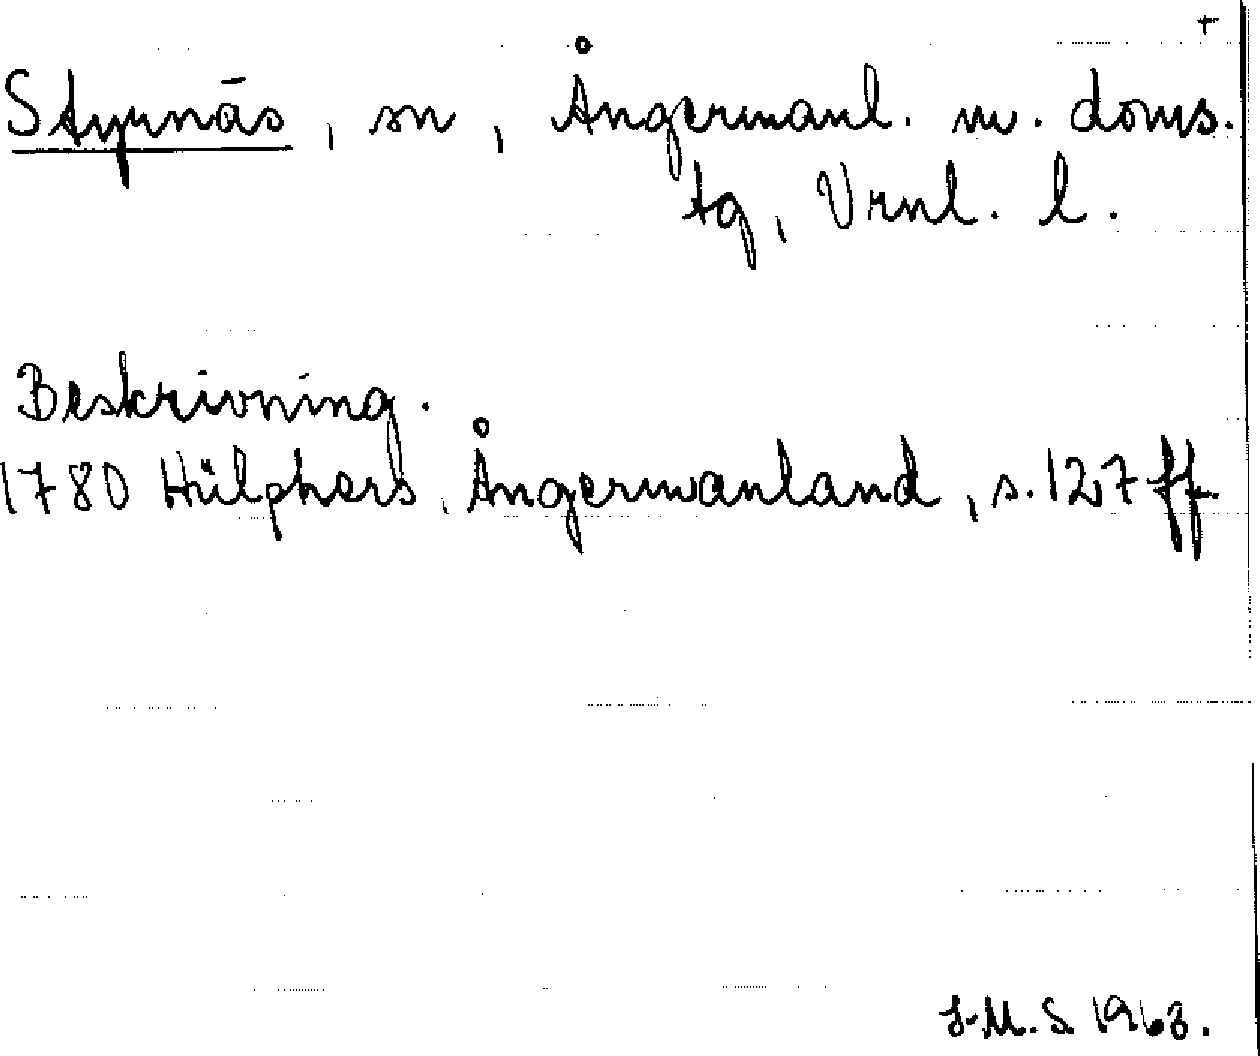 +
Styrnäs, sn, Ångermanl. m. doms.
tg, Vrnl. l.
Beskrivning.
1780 Hülphers, Ångermanland, s. 127 ff.
J.M.S. 1963.